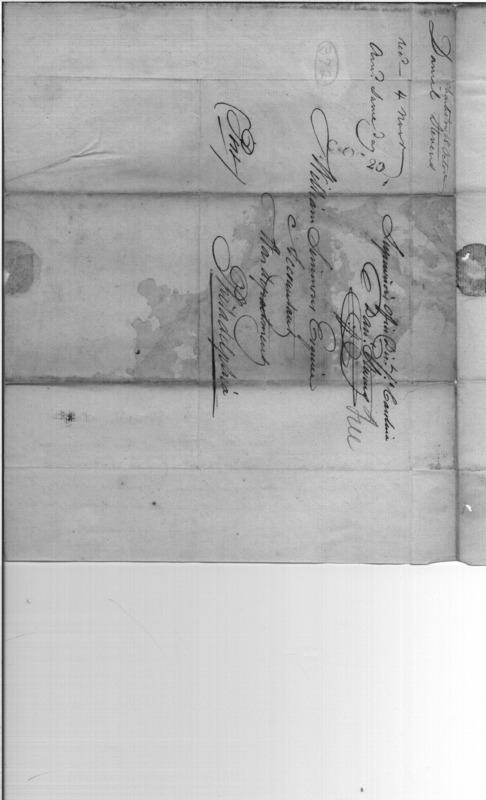 Daniel Stevens
Recd 4 Novr
Ansd same day
372
Supervisors Office Dist. So. Carolina
Danl Stevens
Free
William Simmons Esquire
Accountant
War department
Philadelphia